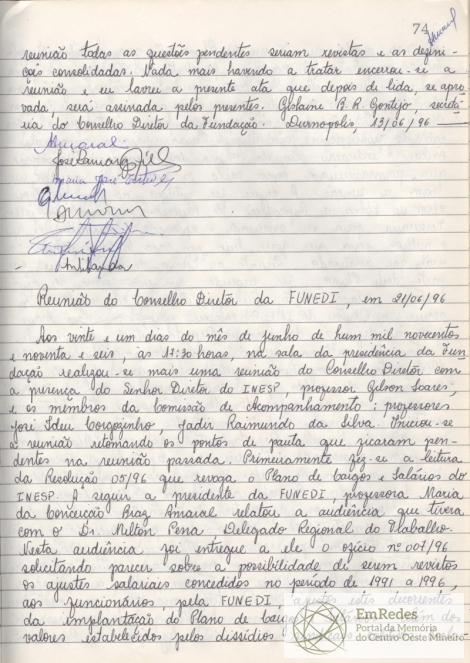 74
reunião todas as questões pendentes seriam revistas e as defini-
ções consolidadas. Nada mais havendo a tratar encerrou-se a
reunião e eu lavrei a presente ata que depois de lida, se apro-
vada, será assinada pelos presentes. Gislaine B. R. Gontijo, secretá-
ria do Conselho Diretor da Fundação. Divinópolis, 13/06/96
Amaral.
Reunião do Conselho Diretor da FUNEDI, em 21/06/96
Aos vinte e um dias do mês de junho de hum mil novecentos
e noventa e seis, às 17:30 horas, na sala da presidência da Fun
dação realizou-se mais uma reunião do Conselho Diretor com
a presença do Senhor Diretor do INESP, professor Gilson Soares,
e os membros da Comissão de Acompanhamento: professores
José Ideu Corgozinho, Jadir Raimundo da Silva. Iniciou-se
a reunião retomando os pontos de pauta que ficaram pen-
dentes na reunião passada. Primeiramente fez-se a leitura
da Resolução 05/96 que revoga o Plano de Cargos e Salários do
INESP. A seguir a presidente da FUNEDI, professora Maria
da Conceição Braz Amaral relatou a audiência que tivera
com o Dr. Milton Pena Delegado Regional do Trabalho.
Nesta audiência foi entregue a ele o ofício nº 007/96
solicitando parecer sobre a possibilidade de serem revistos
os ajustes salariais concedidos no período de 1991 a 1996,
aos funcionários, pela FUNEDI, ajustes estes decorrentes
da implantação do Plano de Cargos
valores estabelecidos pelos dissídios
EmRedes
Portal da Memória
do Centro-Oeste Mineiro